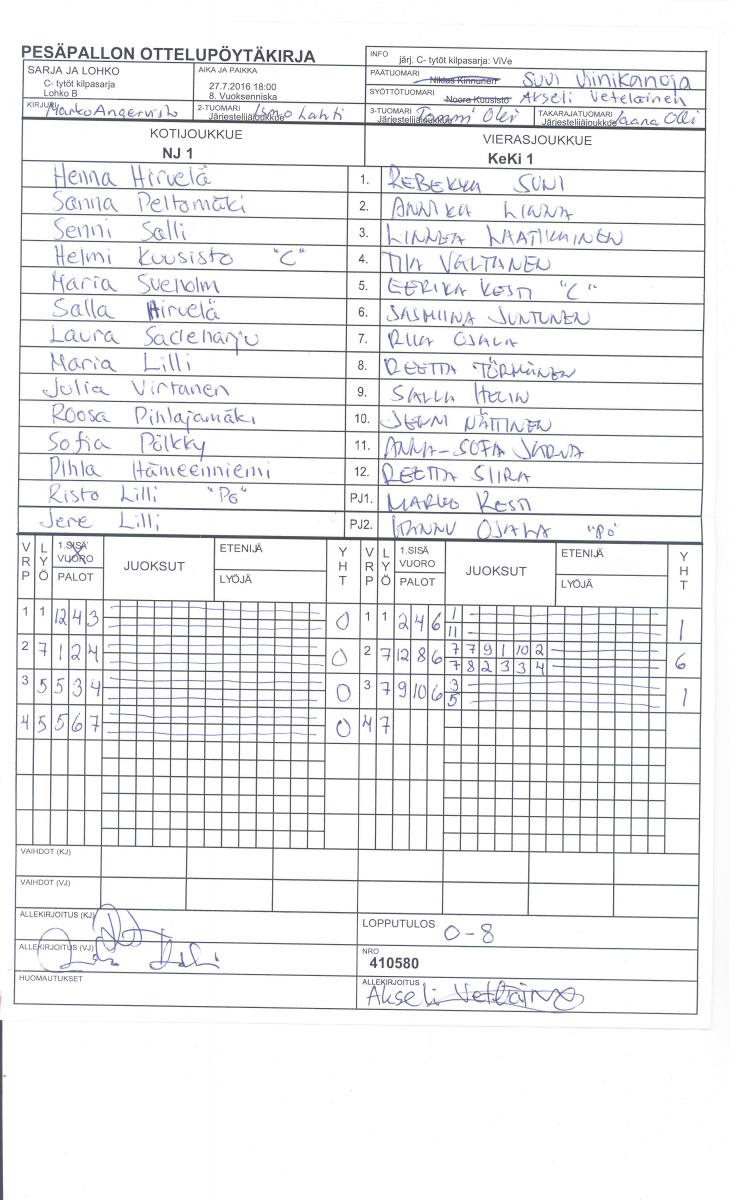 PESÄPALLON OTTELUPÖYTÄKIRJA
INFO järj. C- tytöt kilpasarja: ViVe
SARJA JA LOHKO
C- tytöt kilpasarja
Lohko B
AIKA JA PAIKKA
27.7.2016 18:00
8. Vuoksenniska
PÄÄTUOMARI Niklas Kinnunen Suvi Viinikanoja
SYÖTTÖTUOMARI Noora Kuusisto Akseli Veteläinen
KIRJURI Marko Angervisto
2-TUOMARI Järjestelijäjoukkue Timo Lahti
3-TUOMARI Järjestelijäjoukkue Tommi Olli
TAKARAJATUOMARI Jaana Olli
KOTIJOUKKUE VIERASJOUKKUE
NJ 1 KeKi 1
Henna Hirvelä 1. REBEKKA SUNI
Sanna Peltomäki 2. ANNIKA LINNA
Senni Salli 3. LINNEA LAATIKAINEN
Helmi Kuusisto "C" 4. TIIA VALTANEN
Maria Sveholm 5. EERIKA KESTI "C"
Salla Hirvelä 6. JASMIINA JUNTUNEN
Laura Sadeharju 7. RIIA OJALA
Maria Lilli 8. REETTA TÖRMÄNEN
Julia Virtanen 9. SALLA HELIN
Roosa Pihlajamäki 10. JENNI NÄTTINEN
Sofia Pölkky 11. ANNA-SOFIA JURVA
Pihla Hämeenniemi 12. REETTA SIIRA
Risto Lilli "PG" PJ1. MARKO KESTI
Jere Lilli PJ2. HANNU OJALA "PÖ"
VRP LYÖ 1.SISÄ VUORO PALOT JUOKSUT ETENIJÄ LYÖJÄ YHT VRP LYÖ 1.SISÄ VUORO PALOT JUOKSUT ETENIJÄ LYÖJÄ YHT
1 1 12 4 3 0 1 1 2 4 6 1 1
11
2 7 1 2 4 0 2 7 12 8 6 7 7 9 1 10 2 6
7 8 2 3 3 4
3 5 5 3 4 0 3 7 9 10 6 3 1
5
4 5 5 6 7 0 4 7
VAIHDOT (KJ)
VAIHDOT (VJ)
ALLEKIRJOITUS (KJ)
LOPPUTULOS 0-8
ALLEKIRJOITUS (VJ)
NRO
410580
HUOMAUTUKSET
ALLEKIRJOITUS
Akseli Veteläinen